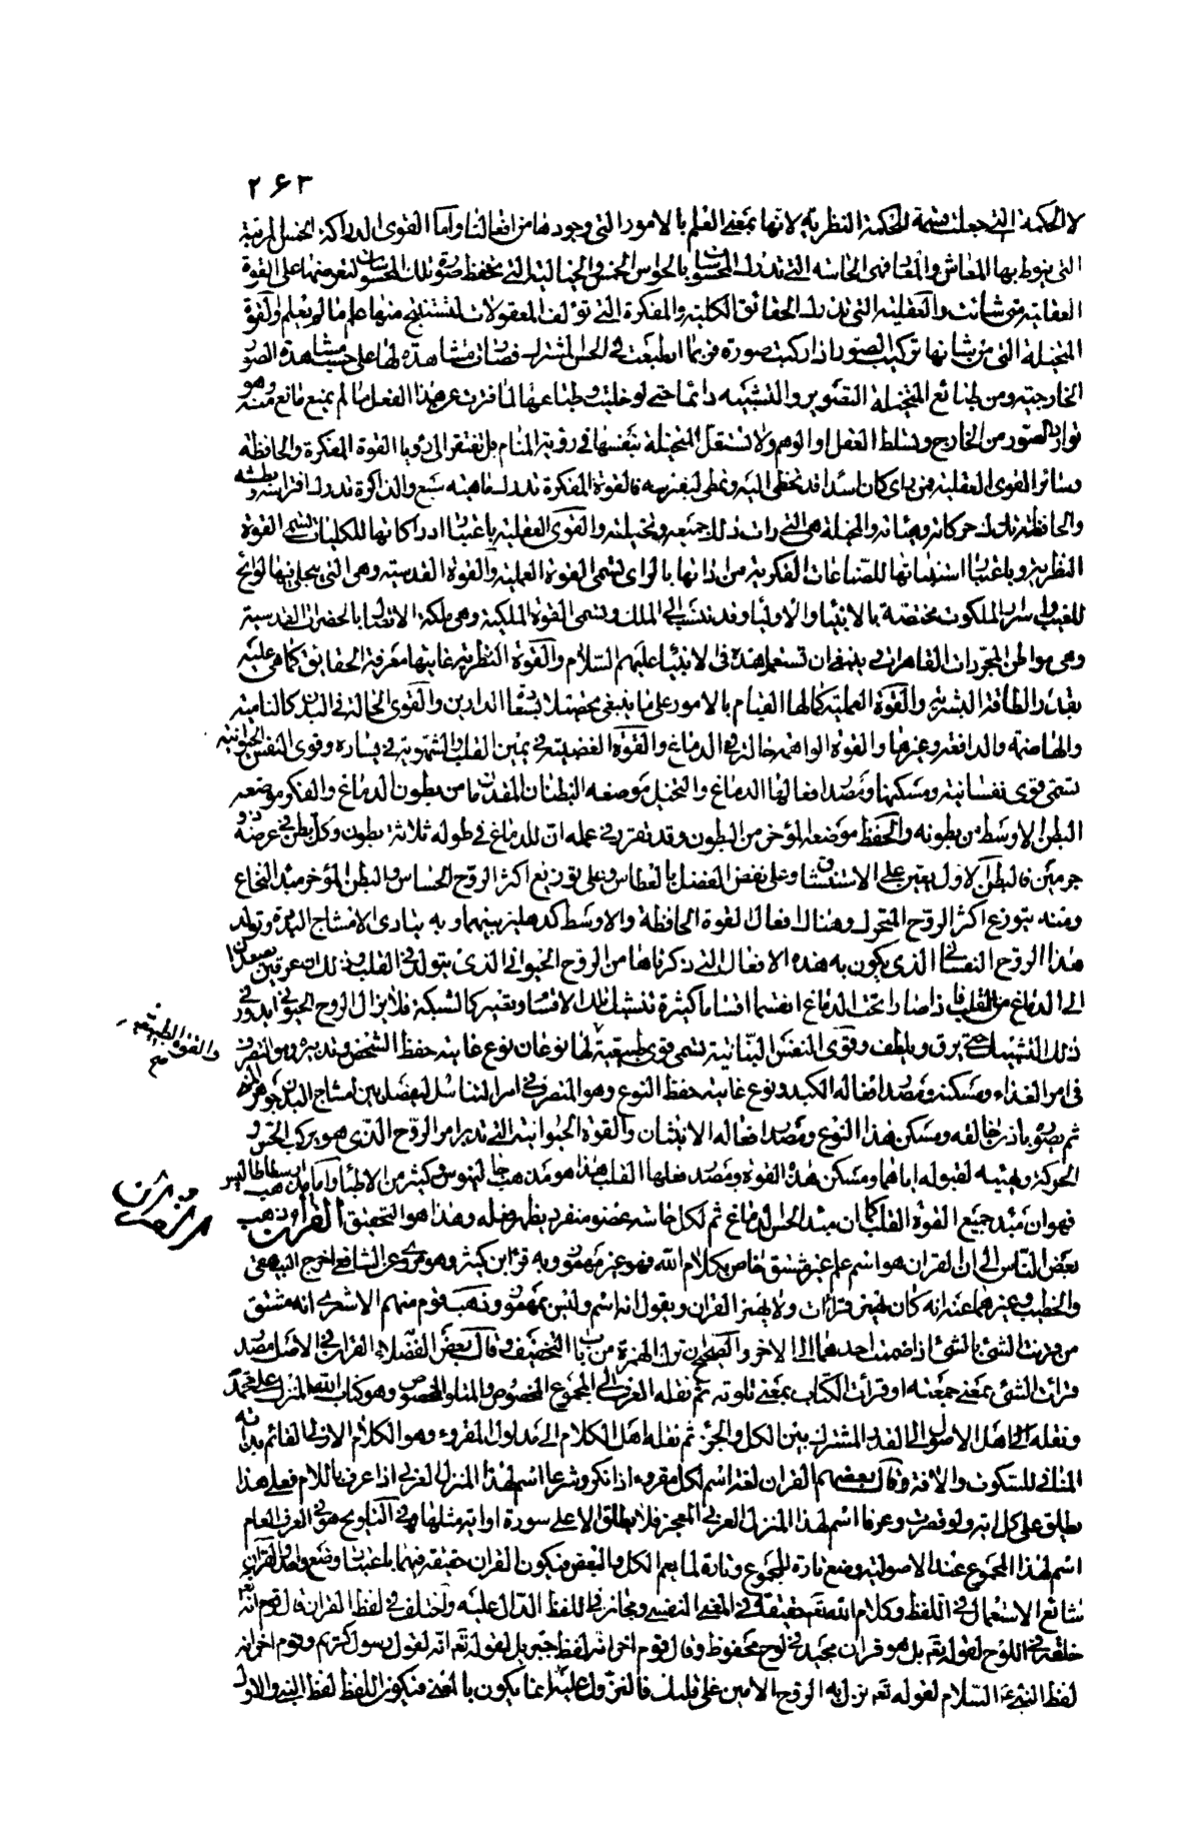 ٢٦٣
لا الحكمة التى جعلت قسيمة للحكمة النظرية لانها بمعنى العلم بالامور التى وجودها من افعالنا واما القوى الدراكة الخمس المرتبة
التى ينوط بها المعاش والمعاد فهى الحاسة التى تدرك المحسوسات بالحواس الخمس والخيالية التى تحفظ صورة تلك المحسوسات لتعرضها على القوة
العقلية متى شاءت والعقلية التى تدرك الحقائق الكلية والمفكرة التى تؤلف المعقولات لتستنتج منها علم ما لم يعلم والقوة
المتخيلة التى من شانها تركيب الصور اذا ركبت صورة فربما انطبعت فى الحس المشترك فصارت مشاهدة لها على حسب مشاهدة الصور
الخارجية ومن طبائع المتخيلة التصوير والتشبيه دائما حتى لو خليت وطباعها لما فترت عن هذا الفعل ما لم يمنع مانع منه وهو
توارد الصور من الخارج وتسلط العقل او الوهم ولا تستقل المتخيلة بنفسها فى رؤية المنام بل تفتقر الى رؤيا القوة المفكرة والحافظة
وسائر القوى العقلية فمن راى كان اسدا قد تخطى اليه وتمطى ليفترسه فالقوة المفكرة تدرك ماهية سبع والذاكرة تدرك افتراسه وبطشه
والحافظة تدرك حركاته وهيئاته والمخيلة هى التى رات ذلك جميعه وتخيلته والقوى العقلية باعتبار ادراكاتها للكليات تسمى القوة
النظرية وباعتبار استنباطها للصناعات الفكرية من ذاتها بالراى تسمى القوة العملية والقوة القدسية وهى التى يتجلى فيها لوائح
الغيب واسرار الملكوت مختصة بالانبياء والاولياء وقد تنسب الى الملك وتسمى القوة الملكية وهى ملكة الاتصال بالحضرات القدسية
وهى مواطن المجردات القاهرات ينبغى ان تستعمل هذه فى الانبياء عليهم السلام والقوة النظرية غايتها معرفة الحقايق كما هى عليه
بقدر الطاقة البشرية والقوة العملية كمالها القيام بالامور على ما ينبغى تحصيلا لسعادة الدارين والقوى الحالة فى البدن كالنامية
والهاضمة والدافعة وغيرها والقوة الواهمة حالة فى الدماغ والقوة الغضبية فى يمين القلب والشهوية فى يساره وقوى النفس الحيوانية
تسمى قوى نفسانية ومسكنها ومصدر افعالها الدماغ والتخيل موضعه البطنان المقدمان من بطون الدماغ والفكر موضعه
البطن الاوسط من بطونه والحفظ موضعه المؤخر من البطون وقد تقرر فى عمله ان للدماغ فى طوله ثلاثة بطون وكل بطن فى عرضه ذو
جزءين فالبطن الاول يعين على الاستنشاق وعلى نفض الفضل بالعطاس وعلى توزيع اكثر الروح الحساس والبطن المؤخر مبدأ النخاع
ومنه يتوزع اكثر الروح المتحرك وهناك افعال القوة الحافظة والاوسط كدهليز بينهما وبه
هذا الروح النفسانى الذى يكون به هذه الافعال التى ذكرناها من الروح الحيوانى الذى يتولد فى القلب وذلك ان عرقين يصعدان
الى الدماغ من القلب فاذا صارا تحت الدماغ انقسما اقساما كثيرة تتشبك تلك الاقسام وتصير كالشبكة فلا يزال الروح الحيوانى يدور فى
ذلك التشبيك حتى يرق ويلطف وقوى النفس النباتية تسمى قوى طبيعية لها نوعان نوع غايته حفظ الشخص وتدبيره وهو المتصرف
والقوة الطبيعية
صح
فى امر الغذاء ومسكنه ومصدر افعاله الكبد ونوع غايته حفظ النوع وهو المتصرف فى امر التناسل ليفصل من امشاج البدن جوهر المنى
ثم يصوره باذن خالقه ومسكن هذا النوع ومصدر افعاله الانثيان والقوة الحيوانية التى تدبر امر الروح الذى هو مركب الحس و
الحركة وتهيئه لقبوله اياهما ومسكن هذه القوة ومصدر فعلها القلب هذا هو مذهب جالينوس وكثير من الاطباء واما مذهب ارسطاطاليس
فهو ان مبدأ جميع القوة القلب كما ان مبدأ الحس الدماغ ثم لكل حاسة عضو منفرد يظهر فعله وهذا هو التحقيق القرآن ذهب
بعض الناس الى ان القران هو اسم علم غير مشتق خاص بكلام الله فهو غير مهموز وبه قرا ابن كثير وهو مروى عن الشافعى اخرج البيهقى
والخطيب وغيرهما عنه انه كان يهمز قراءت ولا يهمز القران ويقول انه اسم وليس بمهموز وذهب قوم منهم الاشعرى انه مشتق
من قرنت الشئ بالشئ اذا ضممت احدهما الى الاخر والصحيح ان ترك الهمزة من باب التخفيف وقال بعض الفضلاء القران فى الاصل مصدر
قرات الشئ بمعنى جمعته او قرات الكتاب بمعنى تلوته ثم نقله العرف الى المجموع المخصوص والمتلو المخصوص وهو كتاب الله المنزل على محمد
ونقله اهل الاصول الى القدر المشترك بين الكل والجزء ثم نقله اهل الكلام الى مدلول المقروء وهو الكلام الازلى القائم بذاته
المنافى للسكوت والافة وقال بعضهم القران لغة اسم لكل مقروء اذا نكر وشرعا اسم لهذا المنزل العربى اذا عرف باللام فعلى هذا
يطلق على كل اية ولو قصرت وعرفا اسم لهذا المنزل العربى المعجز فلا يطلق الا على سورة او اية مثلها وفى التلويح هو فى العرف العام
اسم لهذا المجموع عند الاصولية وضع تارة للمجموع وتارة لما يعم الكل والبعض فيكون القران حقيقة فيهما باعتبار وضع واحد والقرآن
شائع الاستعمال فى اللفظ وكلام الله تعالى حقيقة فى المعنى النفسى ومجاز فى اللفظ الدال عليه واختلف فى لفظ القران قال قوم انه
خلقه فى اللوح لقوله تعالى بل هو قران مجيد فى لوح محفوظ وقال قوم اخر انه لفظ جبريل لقوله تعالى انه لقول رسول كريم وقوم اخر انه
لفظ النبى عليه السلام لقوله تعالى نزل به الروح الامين على قلبك فالنزول عليه انما يكون بالمعنى فيكون اللفظ لفظ النبى والاول